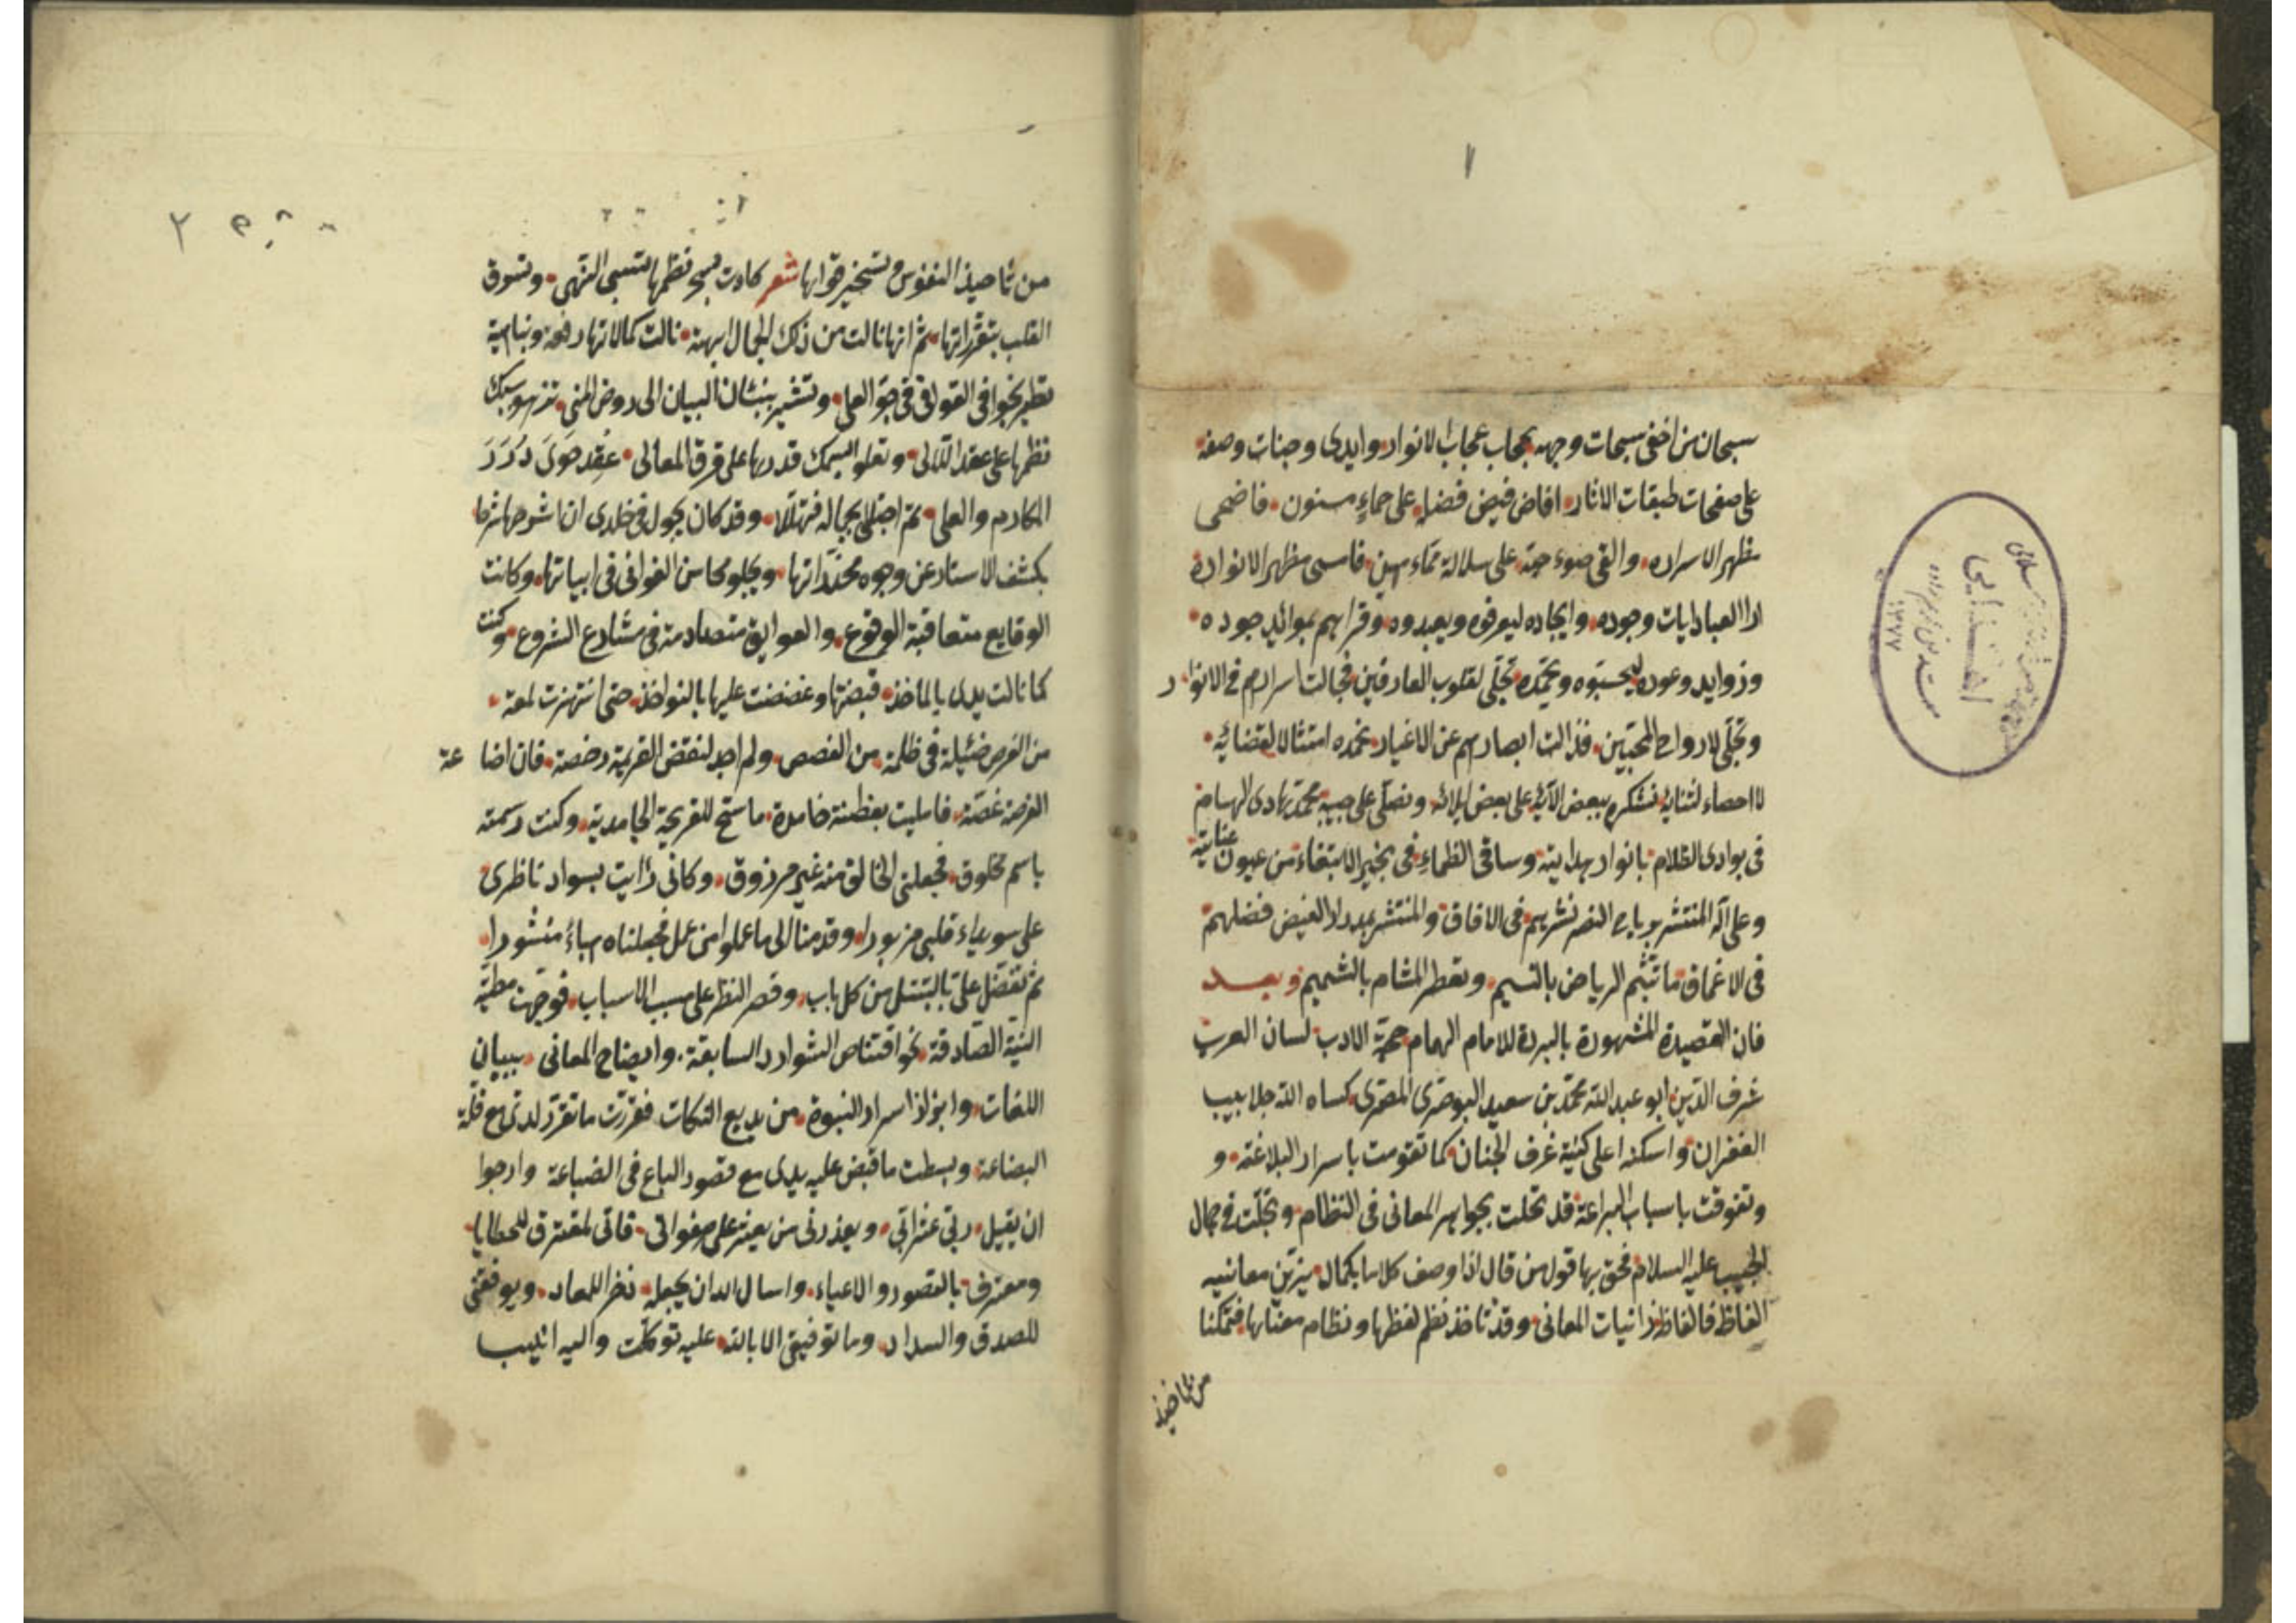 ١
سبحان من اخفى سبحات وجهه بحجاب عجاب الانوار وايدى وجنات وصفه
على صفحات طبقات الاثار افاض فيض فضله على حماء مسنون فاضحى
مظهر الاسراره والقى ضوء على سلالة مماء مهين فامسى مظهر الانواره
العباد ايات وجوده وايجاده ليعرفوه ويعبدوه وقراهم بموائد جوده
وزوايد وعوده ليحبوه ويحمده تجلى لقلوب العارفين فجالت اسرارهم فى الانوار
وتجلى لارواح المحبين فزالت ابصارهم عن الاغيار نحمده امتثالا لقضائه
لا احصاء لثنايه نشكره ببعض الآئه على بعض ايلائه ونصلى على حبيبه محمد هادى الهيام
فى بوادى الظلام بانوار هدايته وساقى الظماء فى الابتغاء من عيون عنايته
وعلى آله المنتشر برياح النصر نشرهم فى الافاق والمنتشر بمدرار الفيض فضلهم
فى الاعماق ما تبسم الرياض بالنسيم وتعطر المشام بالشميم وبعد
فان القصيدة المشهورة بالبردة للامام الهمام حجة الادب لسان العرب
شرف الدين ابو عبد الله محمد بن سعيد البوصرى المصرى كساه الله جلابيب
الغفران واسكنه اعلى غرف الجنان كما تقومت باسرار البلاغة و
وتفوقت باسباب البراعة قد تحلت بجواهر المعانى فى النظام وتجلت فى جمال
الحبيب عليه السلام فحق بها قول من قال اذا وصف كلاما بكمال يزين معانيه
الفاظه فالفاظه زانيات المعانى وقد تاخذ نظم لفظها ونظام معناها فتمكنا
٢
من النفوس وتسخير قواها شعر كادت نظمها تسبى النهى وتسوق
القلب ثم انها نالت من ذلك الجمال ابهة نالت كمالاتها رفعة ونباهة
تطير بخوافى القوافى فى جو العلى وتشير ببنان البيان الى روض المنى
نظمها على عقد اللآلى وتعلو السمك قدرها على فرق المعالى عقد حوى درر
المكارم والعلى ثم اجتلى بجماله فتهللا وقد كان يجول فى خلدى ان اشرحها شرحا
يكشف الاستار عن وجوه مخدراتها ويجلو محاسن الغوانى فى ابياتها وكانت
الوقايع متعاقبة الوقوع والعوايق متصادمة فى مشارع الشروع وكنت
كما نالت يدى بالماخذ قبضتها وعضضت عليها بالنواخذ حتى انتهزت لمعة
من الفرص ضئيلة فى ظلمة من الغصص ولم اجد لنقض العزيمة رخصة فان اضاعة
الفرصة غصة فامليت بفطنة خامدة ما سنح للقريحة الجامدية وكنت رسمته
باسم مخلوق فجعلنى الخالق منه غير مرزوق وكانى رايت بسواد ناظرى
على سويداء قلبى مزبورا وقدمنا الى ما عملوا من عمل فجعلناه هباء منثورا
ثم تفضل على بالتبتل من كل باب وقصر النظر على مسبب الاسباب فوجهت مطية
النية الصادقة نحو اقتناص الشوارد السابقة وايضاح المعانى ببيان
اللغات وابراز اسرار النبوة من بديع النكات فقررت ما تقرر لدى مع قلة
البضاعة وبسطت ما قبض عليه يدى مع قصور الباع فى الصناعة وارجوا
ان يقيل ربى عثراتى ويعذرنى من يعثر على هفواتى فانى لمقترف للخطايا
ومعترف بالقصور والاعياء واسال الله ان يجعله ذخرا للمعاد ويوفقنى
للصدق والسداد وما توفيقى الا بالله عليه توكلت واليه انيب